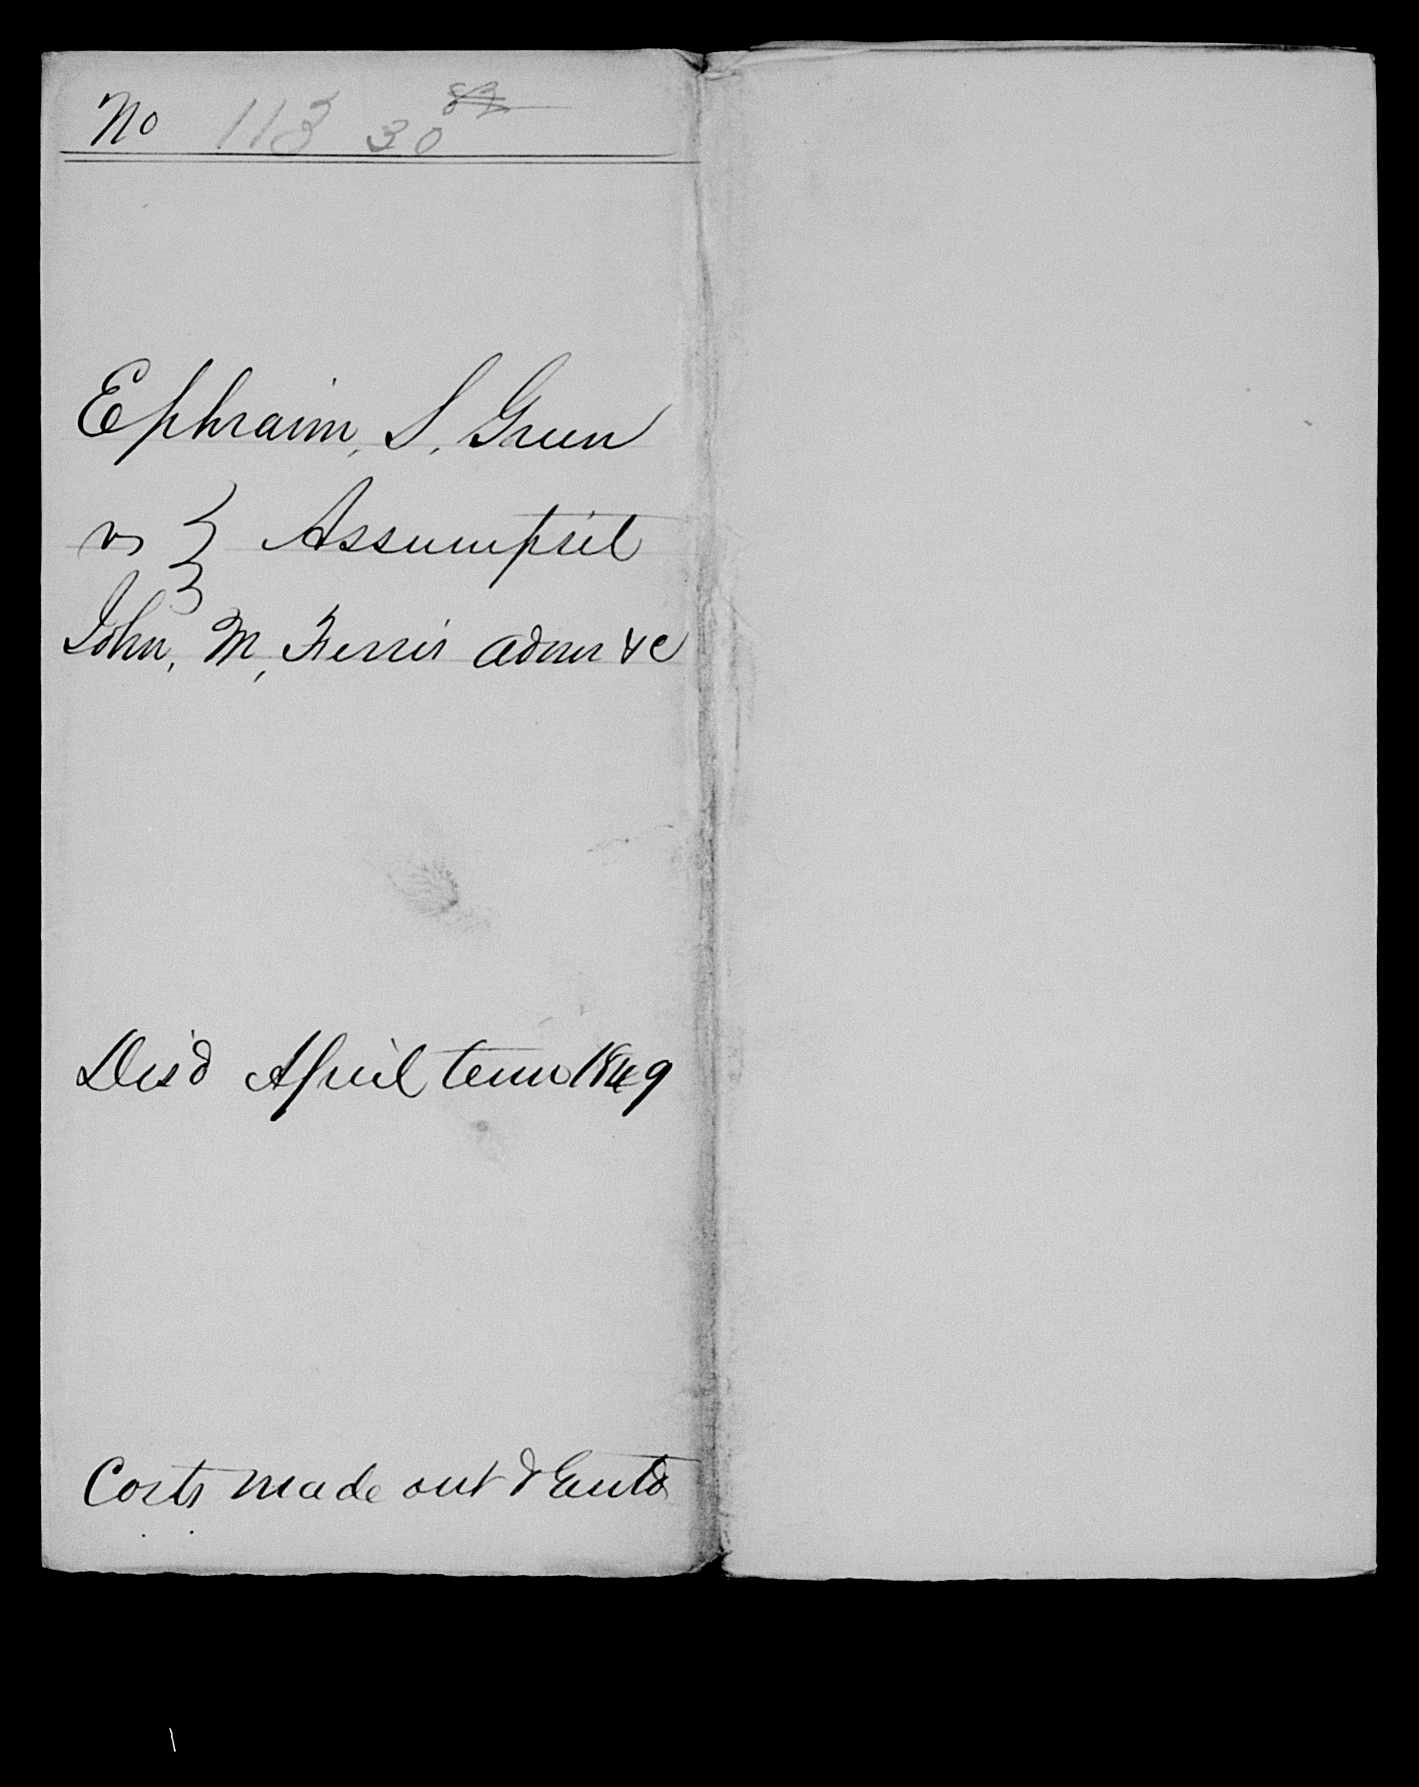 No 113 30
Ephraim, S, Green
vs } Assumpsit
John, M, Ferris admr &c
Dis'd April term 1849
Costs made out & Entd